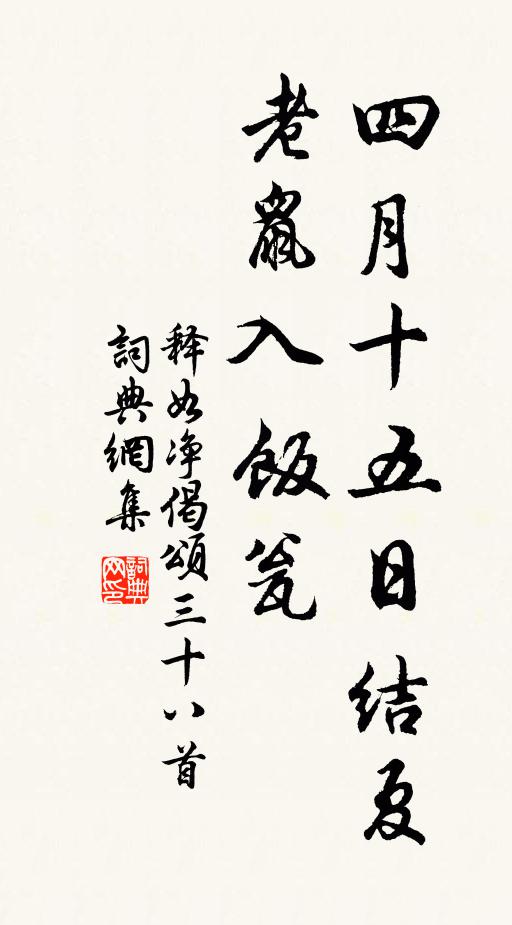 四月十五日结夏
老鼠入饭瓮
释如净偈颂三十八首
詞典網集
詞典網印